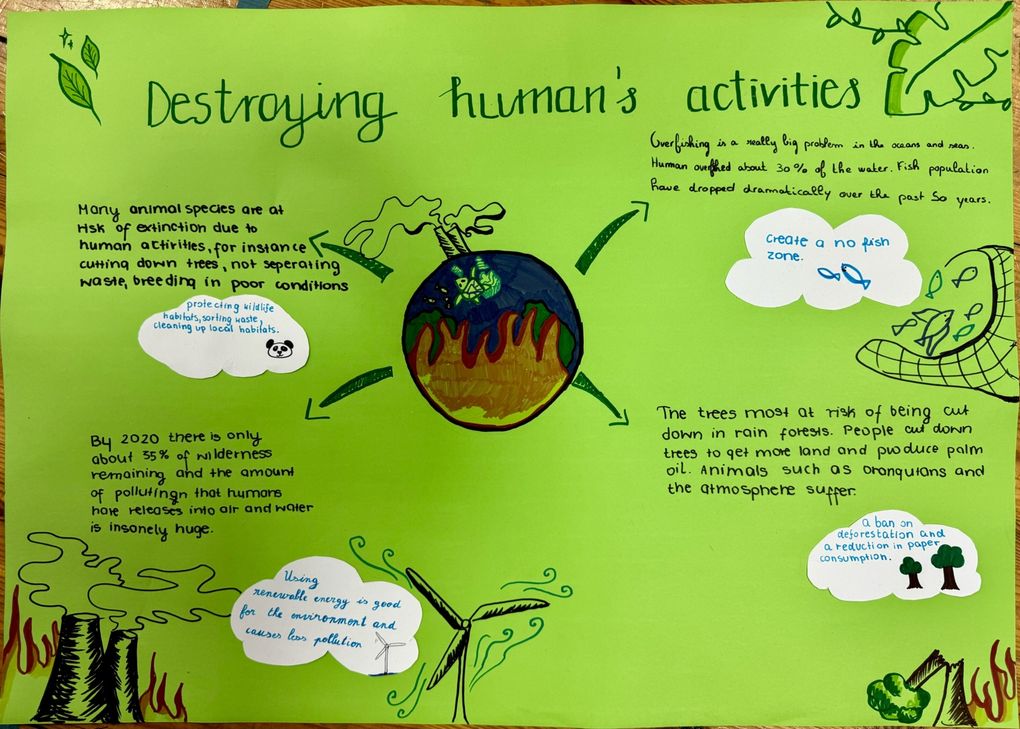 Destroying human's activities
Many animal species are at
risk of extinction due to
human activities, for instance
cutting down trees, not seperating
waste, breeding in poor conditions
protecting wildlife
habitats, sorting waste,
cleaning up local habitats.
Overfishing is a really big problem in the oceans and seas.
Human overfished about 30% of the water. Fish population
have dropped dramatically over the past 50 years.
create a no fish
zone.
By 2020 there is only
about 35% of wilderness
remaining and the amount
of pollutingn that humans
have releases into air and water
is insanely huge.
Using
renewable energy is good
for the environment and
causes less pollution
The trees most at risk of being cut
down in rain forests. People cut down
trees to get more land and produce palm
oil. Animals such as orangutans and
the atmosphere suffer.
a ban on
deforestation and
a reduction in paper
consumption.